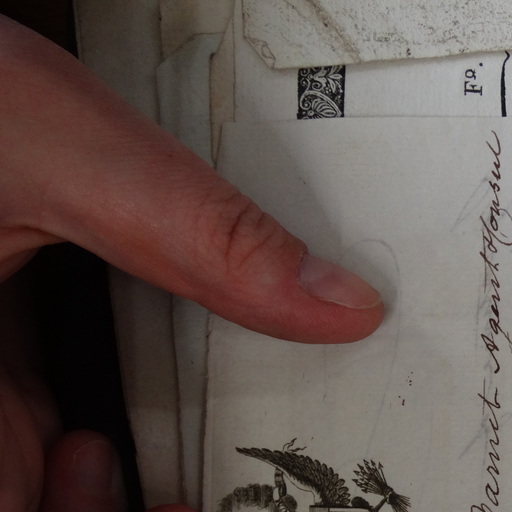 Fo.
Barnet Agent & Consul